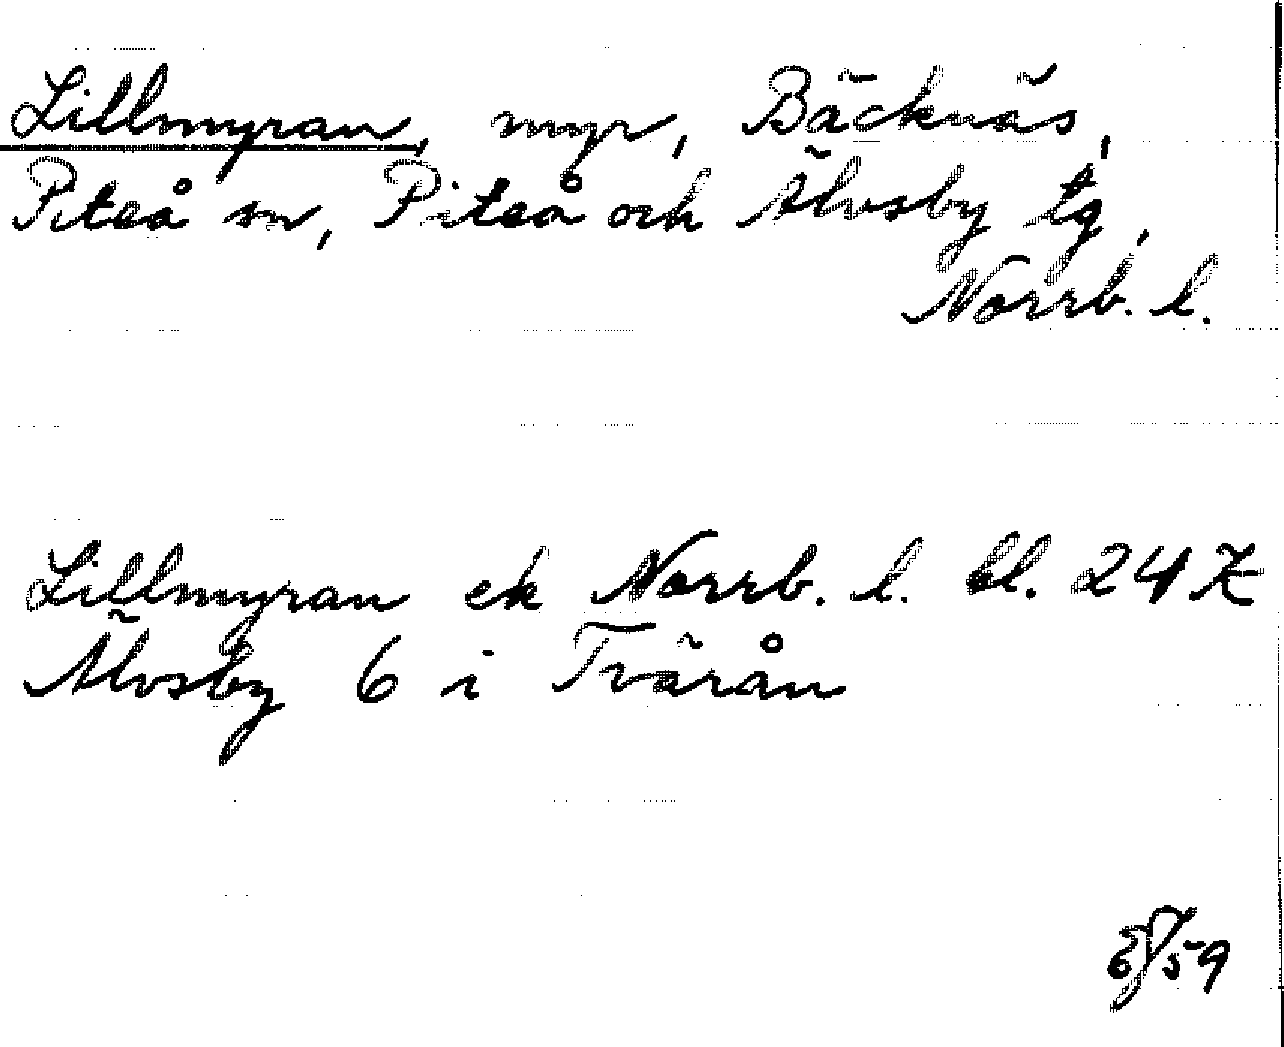 Lillmyran, myr, Bäcknäs,
Piteå sn, Piteå och Älvsby tg,
Norrb. l.
Lillmyran ek Norrb. l. bl. 24 K
Älvsby 6 i Tvärån
59